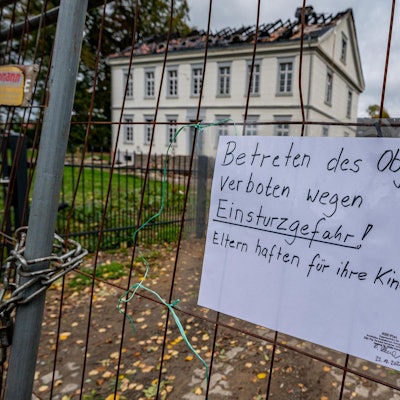 Betreten des Ob
verboten wegen
Einsturzgefahr!
Eltern haften für ihre Kin